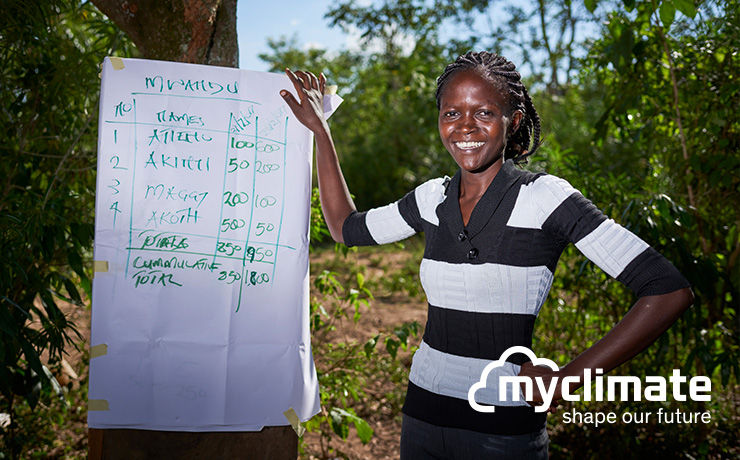 MWANDU
NO NAMES
1 ATIENO 100 600
2 AKINYI 50 200
3 MAGGY 200 100
4 AKOTH 500 50
TOTALS 850 950
CUMMULATIVE 850 1,800
TOTAL
myclimate
shape our future